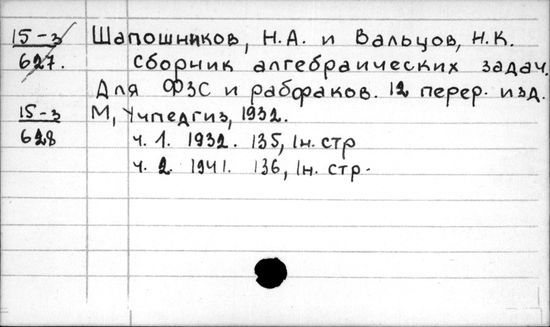 15-з Шапошников, Н.А. и Вальцов, Н.К.
627. Сборник алгебраических задач.
Для ФЗС и рабфаков. 12 перер. изд.
15-з М, Учпедгиз, 1932.
628 ч. 1. 1932. 135, 1н. стр
ч. 2. 1941. 136, 1н. стр.